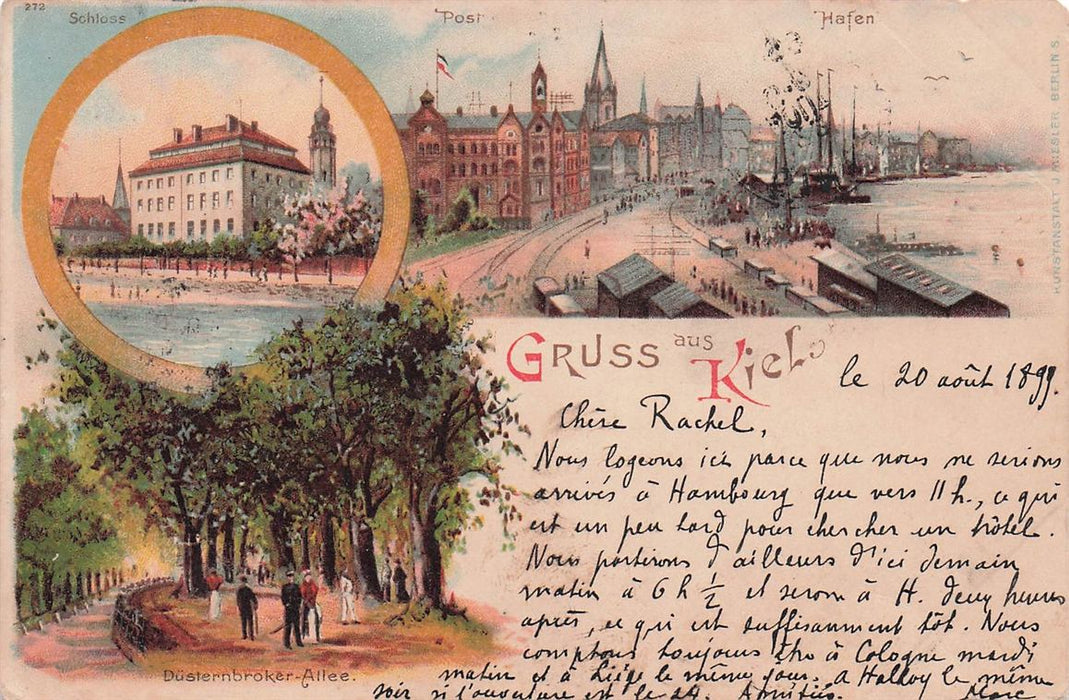 272
Schloss
Post
Hafen
KUNSTANSTALT J. MIESLER BERLIN S.
GRUSS aus Kiel
le 20 août 1899.
Chère Rachel,
Nous logeons ici parce que nous ne serions
arrivés à Hambourg que vers 11 h., ce qui
est un peu tard pour chercher un hôtel.
Nous partirons d'ailleurs d'ici demain
matin à 6 h ½ et serons à H. deux heures
après, ce qui est suffisamment tôt. Nous
comptons toujours être à Cologne mardi
matin et à Liège le même jour. à Halloy le même
soir si l'ouverture est le 24. Amitiés.
Düsternbroker-Allee.